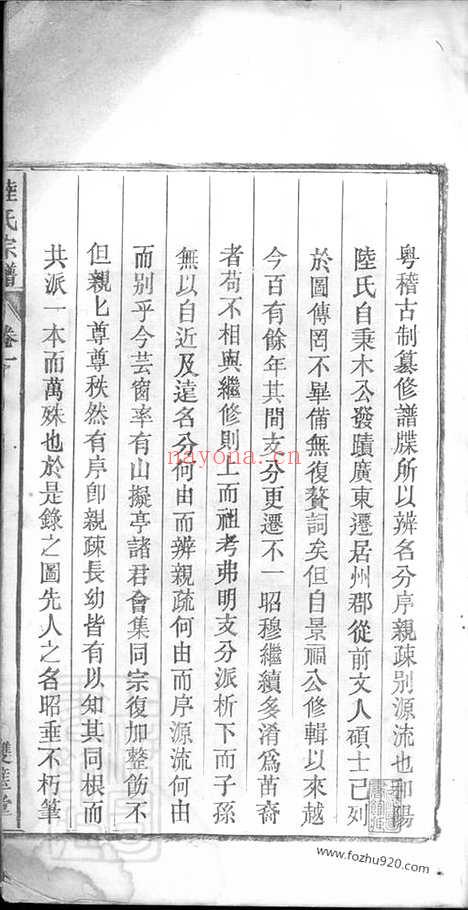 粵稽古制纂修譜牒所以辨名分序親疎別源流也和陽
陸氏自秉木公發蹟廣東遷居州郡從前文人碩士已列
於圖傳罔不畢備無復贅詞矣但自景福公修輯以來越
今百有餘年其間支分更遷不一昭穆繼續多淆為苗裔
者苟不相與繼修則上而祖考弗明支分派析下而子孫
無以自近及遠名分何由而辨親疏何由而序源流何由
而別乎今芸窗率有山擬亭諸君會集同宗復加整飭不
但親匕尊尊秩然有序卽親疎長幼皆有以知其同根而
共派一本而萬殊也於是錄之圖先人之名昭垂不朽筆
陸氏宗譜
卷一
雙
堂
nayona.cn
www.fozhu920.com